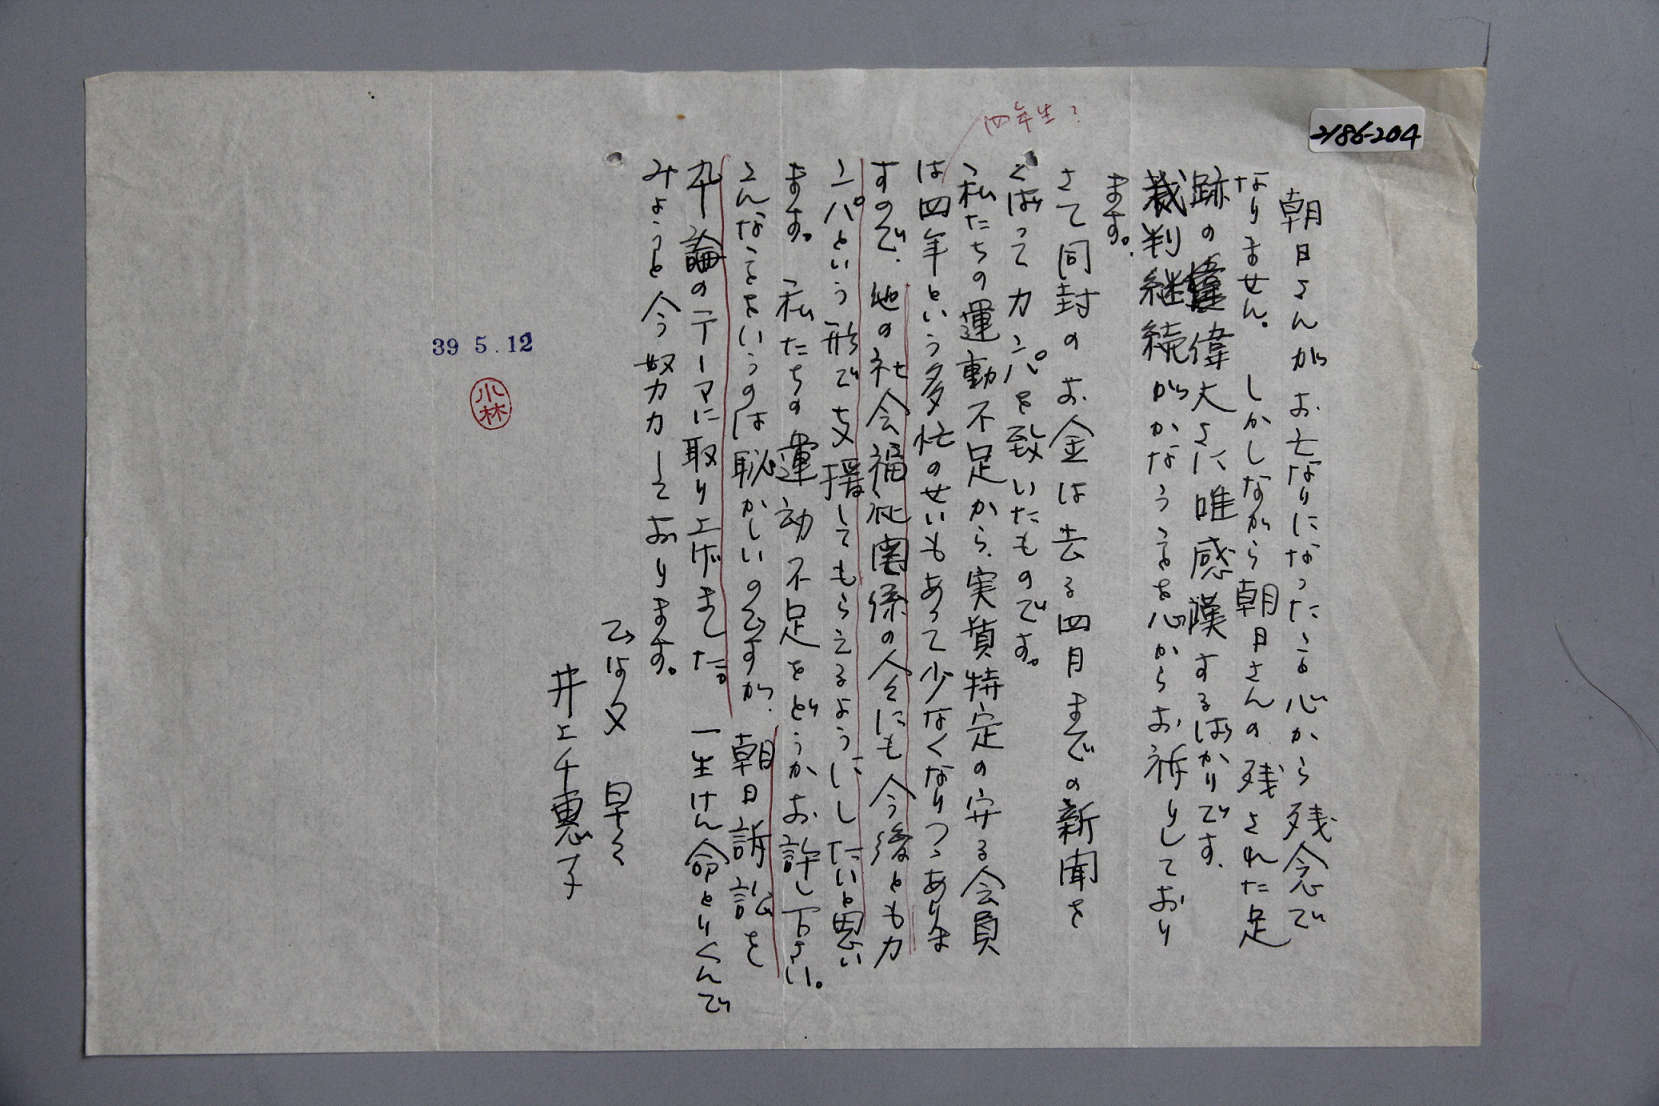 2186-204
四年生?
朝日さんがお亡なりになったこと心から残念で
なりません。しかしながら朝日さんの残された足
跡の偉大さに唯感嘆するばかりです。
裁判継続がかなうことを心からお祈りしており
ます。
さて同封のお金は去る四月までの新聞を
くばってカンパを致いたものです。
私たちの運動不足から、実質特定の守る会員
は四年という多忙のせいもあって少なくなりつゝありま
すので、他の社会福祉関係の人々にも今後ともカ
ンパという形で支援してもらえるようにしたいと思い
ます。私たちの運動不足をどうかお許し下さい。
こんなことをいうのは恥かしいのですが、朝日訴訟を
卒論のテーマに取り上げました。一生けん命とりくんで
みようと今努力しております。
乱文 早々
井上千恵子
39 5.12
小林